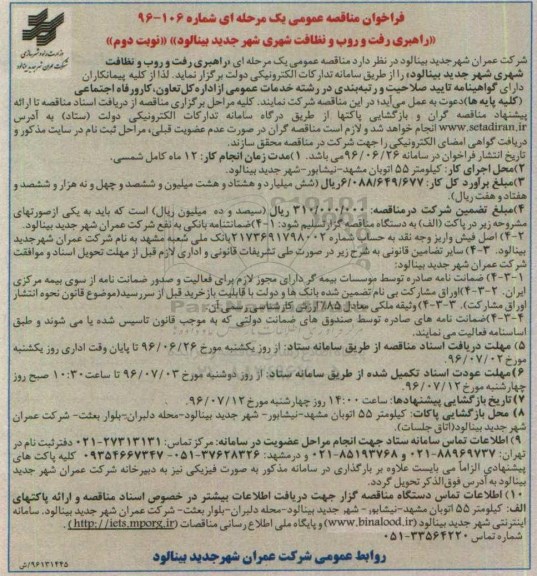 فراخوان مناقصه عمومی یک مرحله ای شماره ۱۰۶-۹۶
«راهبری رفت و روب و نظافت شهری شهر جدید بینالود» «نوبت دوم»
وزارت راه و شهرسازی
شرکت عمران شهر جدید بینالود
شرکت عمران شهر جدید بینالود در نظر دارد مناقصه عمومی یک مرحله ای «راهبری رفت و روب و نظافت
شهری شهر جدید بینالود» را از طریق سامانه تدارکات الکترونیکی دولت برگزار نماید. لذا از کلیه پیمانکاران
دارای گواهینامه تایید صلاحیت و رتبه‌بندی در رشته خدمات عمومی از اداره کل تعاون، کار و رفاه اجتماعی
(کلیه پایه ها) دعوت به عمل می‌آید؛ در این مناقصه شرکت نمایند. کلیه مراحل برگزاری مناقصه از دریافت اسناد مناقصه تا ارائه
پیشنهاد مناقصه گران و بازگشایی پاکتها از طریق درگاه سامانه تدارکات الکترونیکی دولت (ستاد) به آدرس
www.setadiran.ir انجام خواهد شد و لازم است مناقصه گران در صورت عدم عضویت قبلی، مراحل ثبت نام در سایت مذکور و
دریافت گواهی امضای الکترونیکی را جهت شرکت در مناقصه محقق سازند.
تاریخ انتشار فراخوان در سامانه ۹۶/۰۶/۲۶ می باشد. ۱) مدت زمان انجام کار: ۱۲ ماه کامل شمسی.
۲) محل اجرای کار: کیلومتر ۵۵ اتوبان مشهد-نیشابور-شهر جدید بینالود.
۳) مبلغ برآورد کل کار: ۶/۰۸۸/۶۴۹/۶۷۷ ریال (شش میلیارد و هشتاد و هشت میلیون و ششصد و چهل و نه هزار و ششصد و
هفتاد و هفت ریال).
۴) مبلغ تضمین شرکت در مناقصه: ۳۱۰/۰۰۰/۰۰۰ ریال (سیصد و ده میلیون ریال) است که باید به یکی از صورتهای
مشروحه زیر در پاکت (الف) به دستگاه مناقصه گزار تسلیم شود: ۱-۴) ضمانتنامه بانکی به نفع شرکت عمران شهر جدید بینالود.
۲-۴) اصل فیش واریز وجه نقد به حساب شماره ۲۱۷۳۶۹۱۷۹۸۰۰۲ بانک ملی شعبه مشهد به نام شرکت عمران شهر جدید
بینالود. ۳-۴) سایر تضامین قانونی به شرح زیر در صورت طی تشریفات قانونی و اداری لازم قبل از مهلت تحویل اسناد و موافقت
شرکت عمران شهر جدید بینالود:
۱-۳-۴) ضمانت نامه صادره توسط موسسات بیمه گر دارای مجوز لازم برای فعالیت و صدور ضمانت نامه از سوی بیمه مرکزی
ایران. ۲-۳-۴) اوراق مشارکت بی نام تضمین شده بانک ها و دولت با قابلیت بازخرید قبل از سررسید (موضوع قانون نحوه انتشار
اوراق مشارکت). ۳-۳-۴) وثیقه ملکی معادل ۸۵٪ ارزش کارشناسی رسمی آن
۴-۳-۴) ضمانت نامه های صادره توسط صندوق های ضمانت دولتی که به موجب قانون تاسیس شده یا می شوند و طبق
اساسنامه فعالیت می نمایند.
۵) مهلت دریافت اسناد مناقصه از طریق سامانه ستاد: از روز یکشنبه مورخ ۹۶/۰۶/۲۶ تا پایان وقت اداری روز یکشنبه
مورخ ۹۶/۰۷/۰۲.
۶) مهلت عودت اسناد تکمیل شده از طریق سامانه ستاد: از روز دوشنبه مورخ ۹۶/۰۷/۰۳ تا ساعت ۱۰:۳۰ صبح روز
چهارشنبه مورخ ۹۶/۰۷/۱۲.
۷) تاریخ بازگشایی پیشنهادها: ساعت ۱۴:۰۰ روز چهارشنبه مورخ ۹۶/۰۷/۱۲
۸) محل بازگشایی پاکات: کیلومتر ۵۵ اتوبان مشهد-نیشابور- شهر جدید بینالود-محله دلبران-بلوار بعثت- شرکت عمران
شهر جدید بینالود (اتاق جلسات).
۹) اطلاعات تماس سامانه ستاد جهت انجام مراحل عضویت در سامانه: مرکز تماس: ۲۷۳۱۳۱۳۱-۰۲۱ دفتر ثبت نام در
تهران: ۸۸۹۶۹۷۳۷-۰۲۱ و ۸۵۱۹۳۷۶۸-۰۲۱ و در مشهد: ۳۷۶۲۸۳۲۶-۰۵۱ ۰۹۳۵۴۶۶۷۳۴۷ کلیه پاکت های
پیشنهادی الزاماً می بایست علاوه بر بارگذاری در سامانه مذکور به صورت فیزیکی نیز به دبیرخانه شرکت عمران شهر جدید
بینالود به آدرس فوق‌الذکر تحویل گردد.
۱۰) اطلاعات تماس دستگاه مناقصه گزار جهت دریافت اطلاعات بیشتر در خصوص اسناد مناقصه و ارائه پاکتهای
الف: کیلومتر ۵۵ اتوبان مشهد-نیشابور- شهر جدید بینالود-محله دلبران-بلوار بعثت- شرکت عمران شهر جدید بینالود. سامانه
اینترنتی شهر جدید بینالود (www.binalood.ir) و پایگاه ملی اطلاع رسانی مناقصات (http://iets.mporg.ir).
شماره تماس ۳۳۵۶۴۲۲۰-۰۵۱
روابط عمومی شرکت عمران شهر جدید بینالود
۹۶۱۳۱۴۴۵/ش